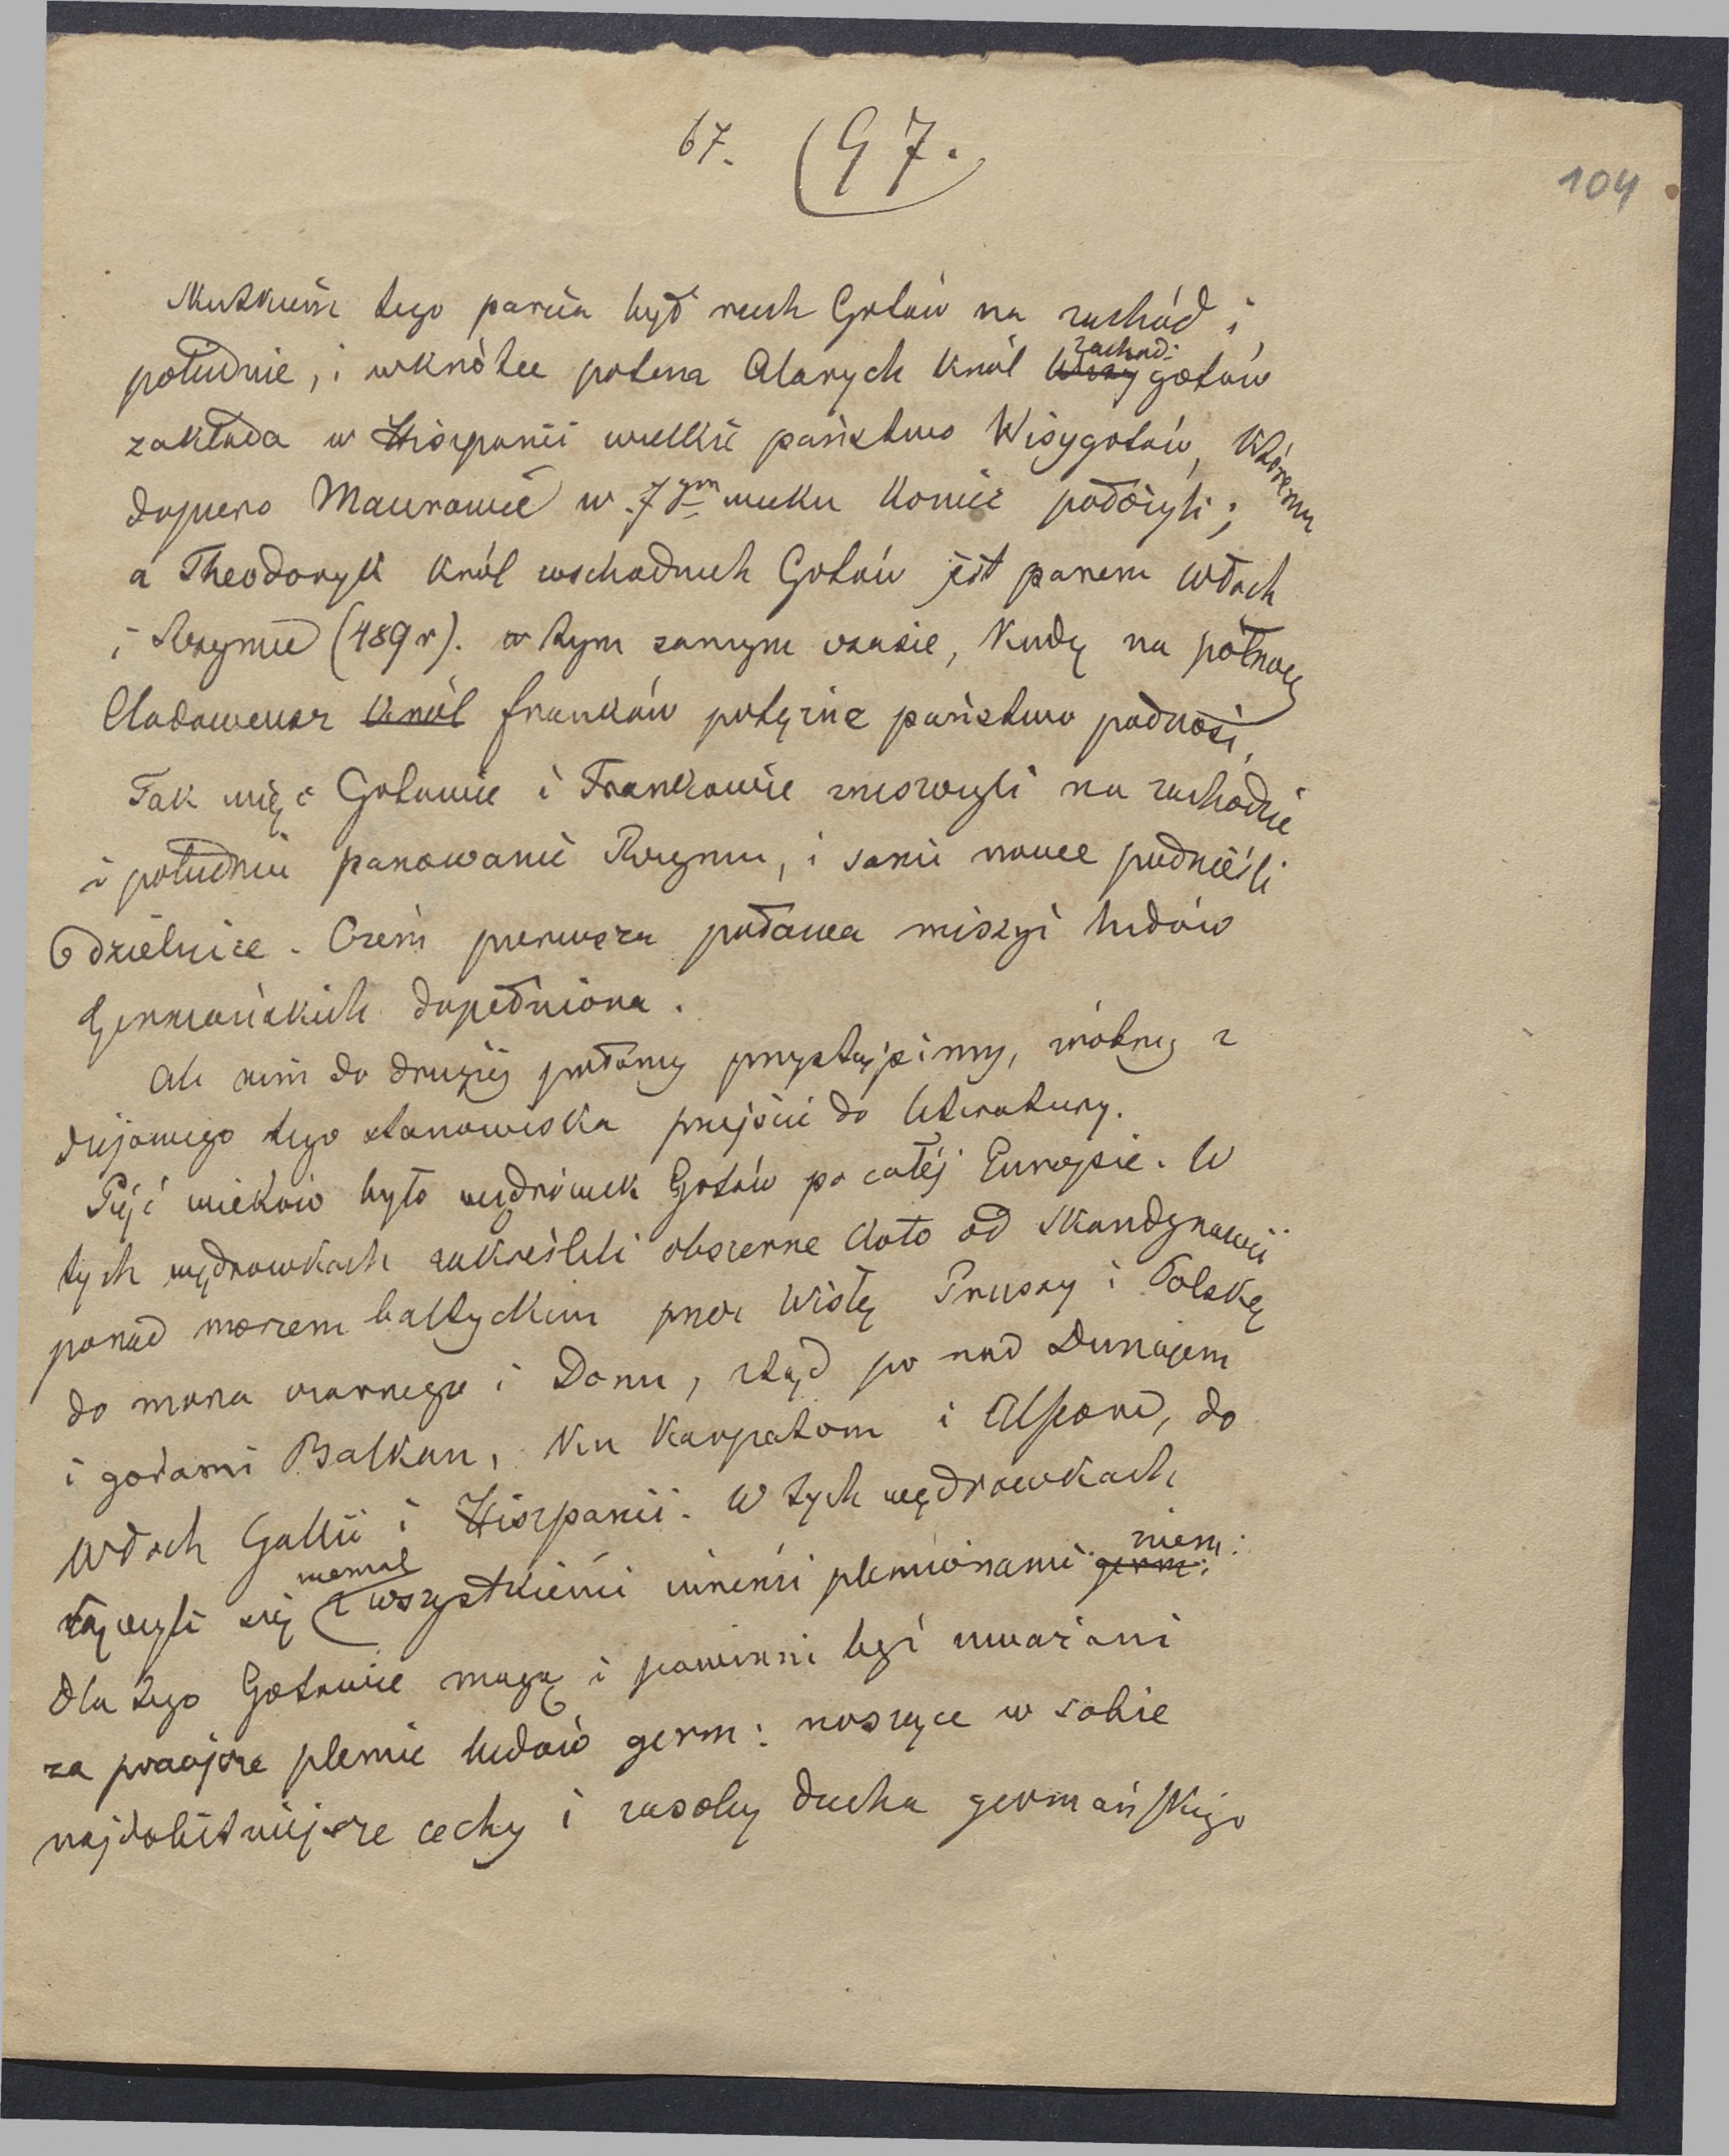 67. (97.
104
Skutkiem tego parcia był ruch Gotów na zachód i
południe, i wkrótce potem Alarych król zachod: gotów
zakłada w Hiszpanii wielkie państwo Wisygotów, któremu
dopiero Maurowie w 7ym wieku koniec położyli;
a Theodoryk król wschodnich Gotów jest panem Włoch
i Rzymu (489 r). w tym samym czasie, kiedy na północy
Clodoweusz król franków potężne państwo podnosi,
Tak więc Gotowie i Frankowie zniszczyli na zachodzie
i południu panowanie Rzymu, i sami nowe podnieśli
dzielnice. Czem pierwsza połowa missyi ludów
Germańskich dopełniona.
Ale nim do drugiej połowy przystąpimy, wróćmy z
dziejowego tego stanowiska przejście do literatury.
Pięć wieków było wędrówek Gotów po całéj Europie. W
tych wędrowkach zakreślili obszerne koło od Skandynawii
ponad morzem baltyckim przez Wisłę Prussy i Polskę
do morza czarnego i Donu, ztąd po nad Dunajem
i gorami Balkan, ku Karpatom i Alpom, do
Włoch Gallii i Hiszpanii. W tych wędrowkach
niemal niem:
łączyli się z wszystkiemi innemi plemionami germ:
dla tego Gotowie mogą i powinni być uważani
za praojcze plemie ludów germ: noszące w sobie
najdobitniejsze cechy i zasoby ducha germańskiego